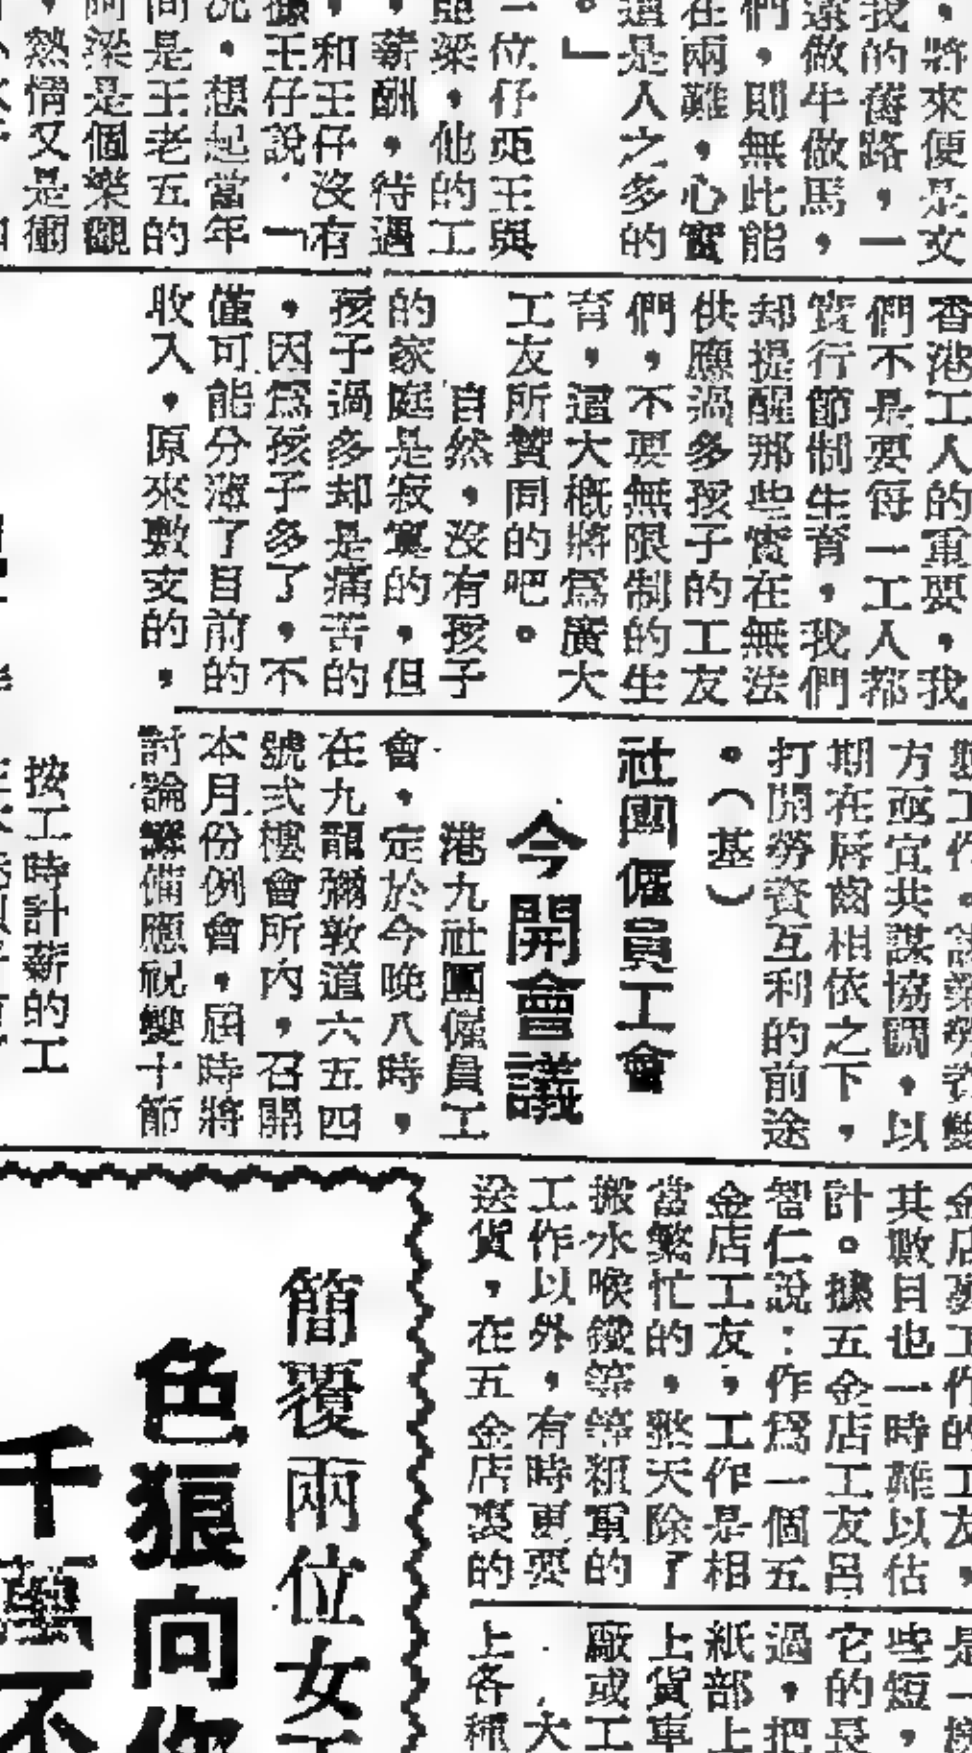 ，將來便是文
我的舊路，一
還做牛做馬，
們，則無此能
在兩難，心實
這是人之多的
。」
一位仔亞王與
亞梁，他的工
，薪酬，待遇
，和王仔沒有
據王仔說．「
況．想起當年
間是王老五的
阿梁是個樂觀
，熱情又是衝
香港工人的重要，我
們不是要每一工人都
實行節制生育，我們
却提醒那些實在無法
供應過多孩子的工友
們，不要無限制的生
育，這大槪將爲廣大
工友所贊同的吧。
自然，沒有孩子
的家庭是寂寞的，但
孩子過多却是痛苦的
，因爲孩子多了，不
僅可能分薄了目前的
收入，原來敷支的，
方亟宜共謀協調，以
期在唇齒相依之下，
打開勞資互利的前途
。（基）
社團僱員工會
今開會議
港九社團僱員工
會．定於今晚八時，
在九龍彌敦道六五四
號弍樓會所內，召開
本月份例會，屆時將
討論籌備應祝雙十節
按工時計薪的工
金店裏工作的工友，
其數目也一時難以估
計。據五金店工友呂
智仁說：作爲一個五
金店工友，工作是相
當繁忙的，整天除了
搬水喉鐵等等粗重的
工作以外，有時更要
送貨，在五金店裏的
是一
些短，
它的長
過，把
紙部上
上貨車
廠或工
大
上各種
簡覆兩位女工
色狼向你
千萬不